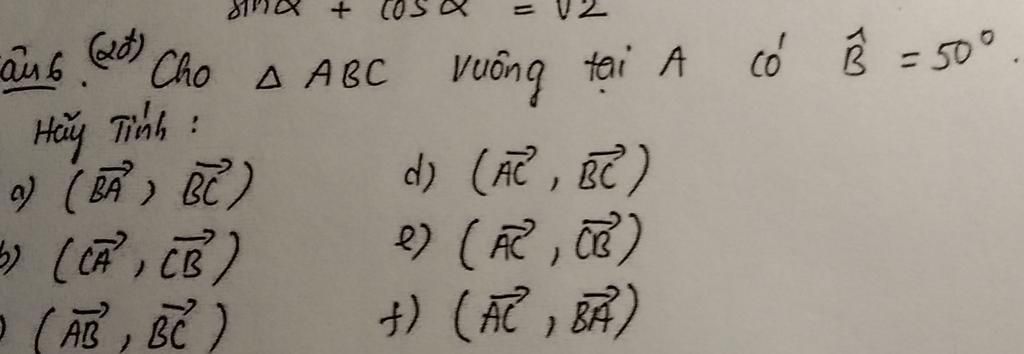 sinα + cosα = √2
âu 6. (2đ) Cho Δ ABC vuông tại A có B̂ = 50°.
Hãy Tính :
a) (BA⃗ , BC⃗)
d) (AC⃗ , BC⃗)
b) (CA⃗ , CB⃗)
e) (AC⃗ , CB⃗)
) (AB⃗ , BC⃗)
f) (AC⃗ , BA⃗)